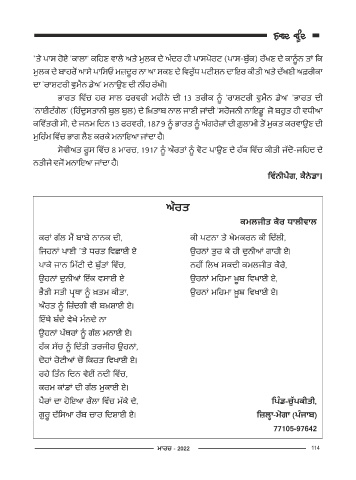 ਨਿਸਟ ਵੂੰਦ
'ਤੇ ਪਾਸ ਹੋਏ 'ਕਾਲਾ' ਕਹਿਣ ਵਾਲੇ ਅਤੇ ਮੁਲਕ ਦੇ ਅੰਦਰ ਹੀ ਪਾਸਪੋਰਟ (ਪਾਸ-ਬੁੱਕ) ਰੱਖਣ ਦੇ ਕਾਨੂੰਨ ਤਾਂ ਕਿ
ਮੁਲਕ ਦੇ ਬਾਹਰੋਂ ਆਸੇ ਪਾਸਿਓਂ ਮਜ਼ਦੂਰ ਨਾ ਆ ਸਕਣ ਦੇ ਵਿਰੁੱਧ ਪਟੀਸ਼ਨ ਦਾਇਰ ਕੀਤੀ ਅਤੇ ਦੱਖਣੀ ਅਫ਼ਰੀਕਾ
ਦਾ 'ਰਾਸ਼ਟਰੀ ਵੂਮੈਨ ਡੇਅ' ਮਨਾਉਣ ਦੀ ਨੀਂਹ ਰੱਖੀ।
ਭਾਰਤ ਵਿੱਚ ਹਰ ਸਾਲ ਫਰਵਰੀ ਮਹੀਨੇ ਦੀ 13 ਤਰੀਕ ਨੂੰ 'ਰਾਸ਼ਟਰੀ ਵੂਮੈਨ ਡੇਅ' 'ਭਾਰਤ ਦੀ
'ਨਾਈਟੰਗੇਲ' (ਹਿੰਦੁਸਤਾਨੀ ਬੁਲ ਬੁਲ) ਦੇ ਖ਼ਿਤਾਬ ਨਾਲ ਜਾਣੀ ਜਾਂਦੀ 'ਸਰੋਜਨੀ ਨਾਇਡੂ' ਜੋ ਬਹੁਤ ਹੀ ਵਧੀਆ
ਕਵਿੱਤਰੀ ਸੀ, ਦੇ ਜਨਮ ਦਿਨ 13 ਫਰਵਰੀ, 1879 ਨੂੰ ਭਾਰਤ ਨੂੰ ਅੰਗਰੇਜ਼ਾਂ ਦੀ ਗੁਲਾਮੀ ਤੋਂ ਮੁਕਤ ਕਰਵਾਉਣ ਦੀ
ਮੁਹਿੰਮ ਵਿੱਚ ਭਾਗ ਲੈਣ ਕਰਕੇ ਮਨਾਇਆ ਜਾਂਦਾ ਹੈ।
ਸੋਵੀਅਤ ਰੂਸ ਵਿੱਚ 8 ਮਾਰਚ, 1917 ਨੂੰ ਔਰਤਾਂ ਨੂੰ ਵੋਟ ਪਾਉਣ ਦੇ ਹੱਕ ਵਿੱਚ ਕੀਤੀ ਜੱਦੋ-ਜਹਿਦ ਦੇ
ਨਤੀਜੇ ਵਜੋਂ ਮਨਾਇਆ ਜਾਂਦਾ ਹੈ।
ਵਿੰਨੀਪੈਗ, ਕੈਨੇਡਾ।
ਔਰਤ
ਕਮਲਜੀਤ ਕੌਰ ਧਾਲੀਵਾਲ
ਕਰਾਂ ਗੱਲ ਮੈਂ ਬਾਬੇ ਨਾਨਕ ਦੀ,
ਜਿਹਨਾਂ ਪਾਣੀ 'ਤੇ ਧਰਤ ਵਿਛਾਈ ਏ
ਪਾਕੇ ਜਾਨ ਮਿੱਟੀ ਦੇ ਬੁੱਤਾਂ ਵਿੱਚ,
ਉਹਨਾਂ ਦੁਨੀਆਂ ਇੱਕ ਵਸਾਈ ਏ
ਭੈੜੀ ਸਤੀ ਪ੍ਰਥਾ ਨੂੰ ਖ਼ਤਮ ਕੀਤਾ,
ਔਰਤ ਨੂੰ ਜ਼ਿੰਦਗੀ ਵੀ ਬਖ਼ਸ਼ਾਈ ਏ।
ਇੱਥੇ ਬੰਦੇ ਵੇਖੇ ਮੰਨਦੇ ਨਾ
ਉਹਨਾਂ ਪੱਥਰਾਂ ਨੂੰ ਗੱਲ ਮਨਾਈ ਏ।
ਹੱਕ ਸੱਚ ਨੂੰ ਦਿੱਤੀ ਤਰਜੀਹ ਉਹਨਾਂ,
ਦੋਹਾਂ ਰੋਟੀਆਂ ਚੋਂ ਕਿਰਤ ਵਿਖਾਈ ਏ।
ਰਹੇ ਤਿੰਨ ਦਿਨ ਵੇਈਂ ਨਦੀ ਵਿੱਚ,
ਕਰਮ ਕਾਂਡਾਂ ਦੀ ਗੱਲ ਮੁਕਾਈ ਏ।
ਪੈਰਾਂ ਦਾ ਹੋਇਆ ਰੌਲਾ ਵਿੱਚ ਮੱਕੇ ਦੇ,
ਗੁਰੂ ਦੱਸਿਆ ਰੱਬ ਚਾਰ ਦਿਸ਼ਾਈ ਏ।
ਕੀ ਪਟਨਾ ਤੇ ਐਮਕਰਨ ਕੀ ਦਿੱਲੀ,
ਉਹਨਾਂ ਤੁਰ ਕੇ ਹੀ ਦੁਨੀਆਂ ਗਾਹੀ ਏ।
ਨਹੀਂ ਲਿਖ ਸਕਦੀ ਕਮਲਜੀਤ ਕੌਰੇ,
ਉਹਨਾਂ ਮਹਿਮਾ ਖ਼ੂਬ ਵਿਖਾਈ ਏ,
ਉਹਨਾਂ ਮਹਿਮਾ ਖ਼ੂਬ ਵਿਖਾਈ ਏ।
ਪਿੰਡ-ਚੁੱਪਕੀਤੀ,
ਜ਼ਿਲ੍ਹਾ-ਮੋਗਾ (ਪੰਜਾਬ)
77105-97642
ਮਾਰਚ - 2022
114